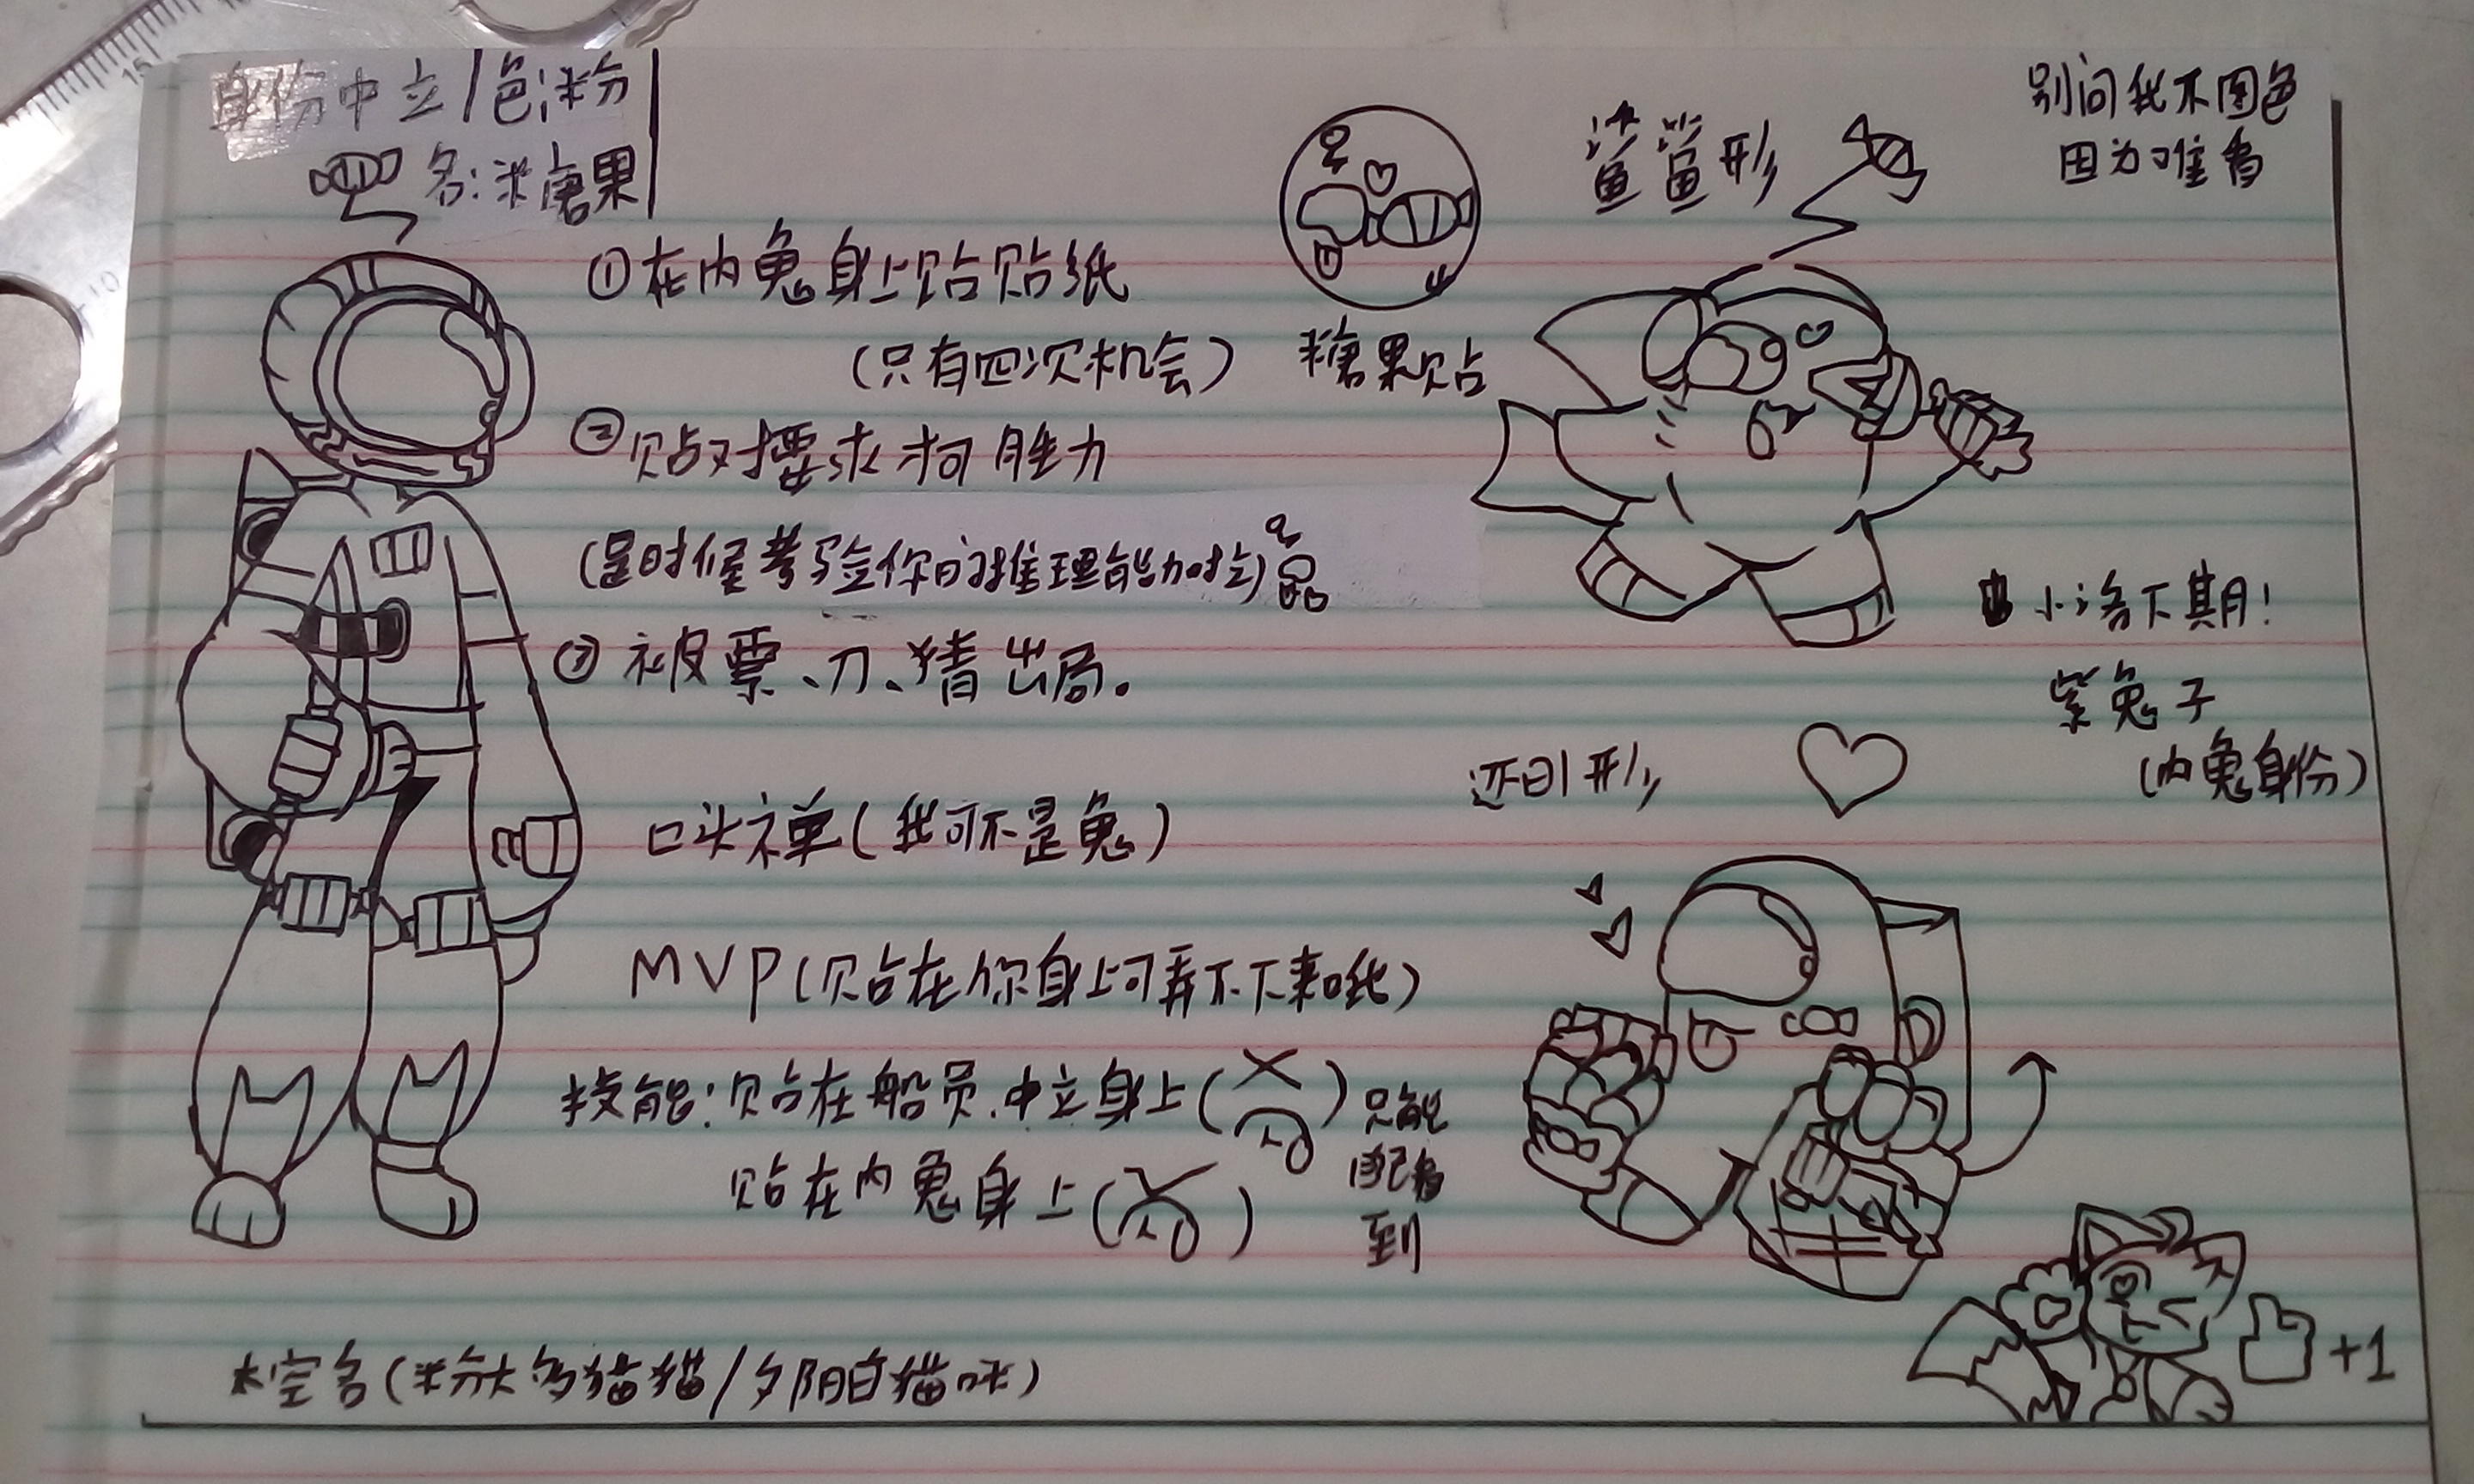 身份中立/色:粉
名:糖果
①在内鬼身上贴贴纸
(只有四次机会)
糖果贴
②贴对要求可胜力
(是时候考验你的推理能力啦)
③被票、刀、猜出局。
口头禅(我可不是鬼)
MVP(贴在你身上可弄不下来哦)
技能:贴在船员.中立身上( )
贴在内鬼身上( )
只能
自己看
到
太空名(粉大多猫猫/夕阳白猫咪)
鲨鲨形
别问我不图色
因为难看
小洛下期!
紫兔子
(内鬼身份)
还日1形
+1